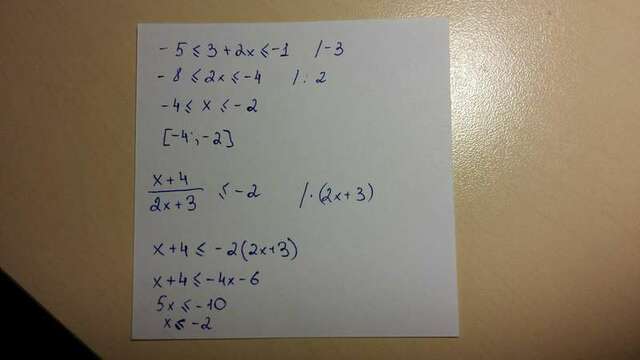 -5 ≤ 3 + 2x ≤ -1 /-3
-8 ≤ 2x ≤ -4 /: 2
-4 ≤ x ≤ -2
[-4; -2]
x+4
2x+3 ≤ -2 /·(2x+3)
x+4 ≤ -2(2x+3)
x+4 ≤ -4x-6
5x ≤ -10
x ≤ -2